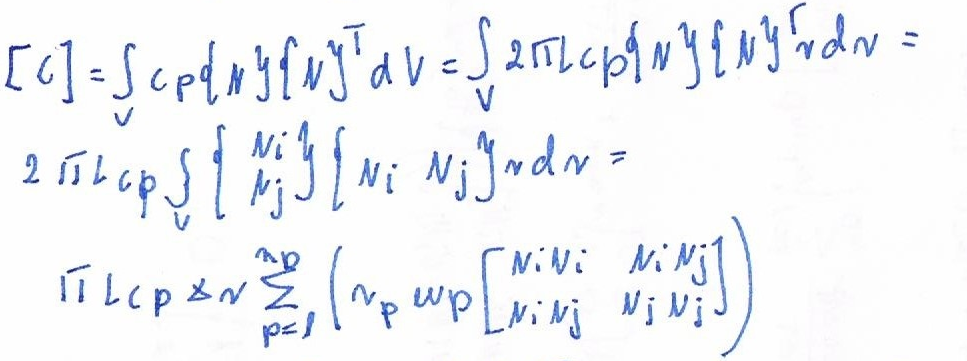 [C] = ∫_V cρ{N}{N}^T dV = ∫_V 2πLcρ{N}{N}^T r dr =
2πLcρ ∫_V { Ni Nj } { Ni Nj } r dr =
πLcρ Δr Σ_{p=1}^{np} ( r_p w_p [ NiNi NiNj NiNj NjNj ] )